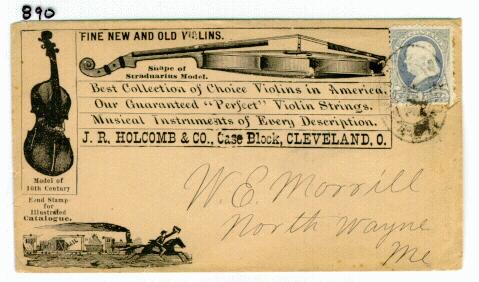 890
FINE NEW AND OLD VIOLINS.
Shape of
Straduarius Model.
Best Collection of Choice Violins in America.
Our Guaranteed "Perfect" Violin Strings.
Musical Instruments of Every Description.
J. R. HOLCOMB & CO., Case Block, CLEVELAND, O.
Model of
16th Century
Send Stamp
for
Illustrated
Catalogue.
W. E. Morrill
North Wayne
Me